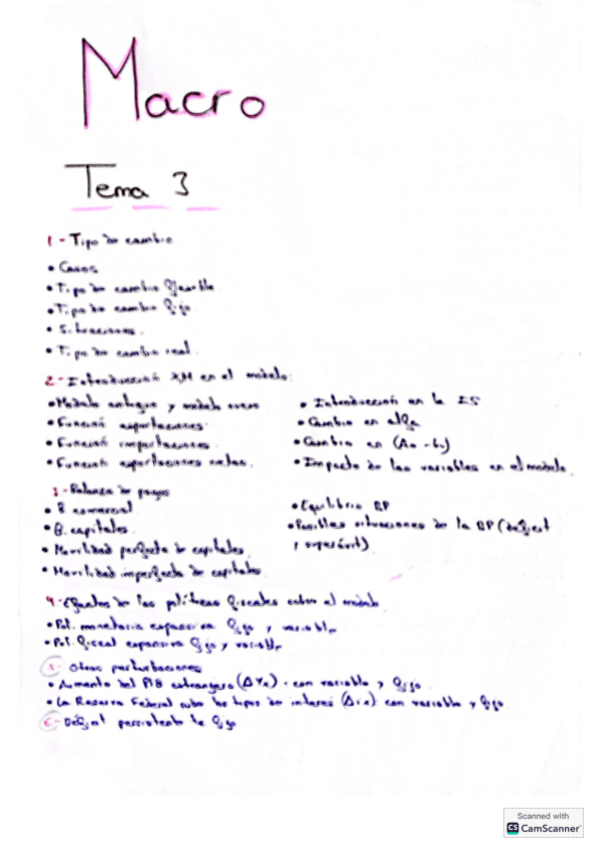 Macro
Tema 3
1 - Tipo de cambio
• Casos
• Tipo de cambio flexible
• Tipo de cambio fijo
• Situaciones.
• Tipo de cambio real.
2 - Introducción XM en el modelo:
• Modelo antiguo y modelo nuevo
• Función exportaciones
• Función importaciones
• Función exportaciones netas.
• Introducción en la IS
• Cambio en alfa
• Cambio en
• Impacto de las variables en el modelo.
3 - Balanza de pagos
• B comercial
• B. capitales.
• Movilidad perfecta de capitales.
• Movilidad imperfecta de capitales
• Equilibrio BP
• Posibles situaciones de la BP (déficit
y superávit).
4 - Efectos de las políticas fiscales sobre el modelo
• Pol. monetaria expansiva fijo y variable
• Pol. fiscal expansiva fijo y variable
5 - Otras perturbaciones
• Aumento del PIB extranjero (Δ Yx) - con variable y fijo.
• La Reserva Federal sube los tipos de interés (Δix) con variable y fijo
6 - Déficit persistente tc fijo
Scanned with
CS CamScanner